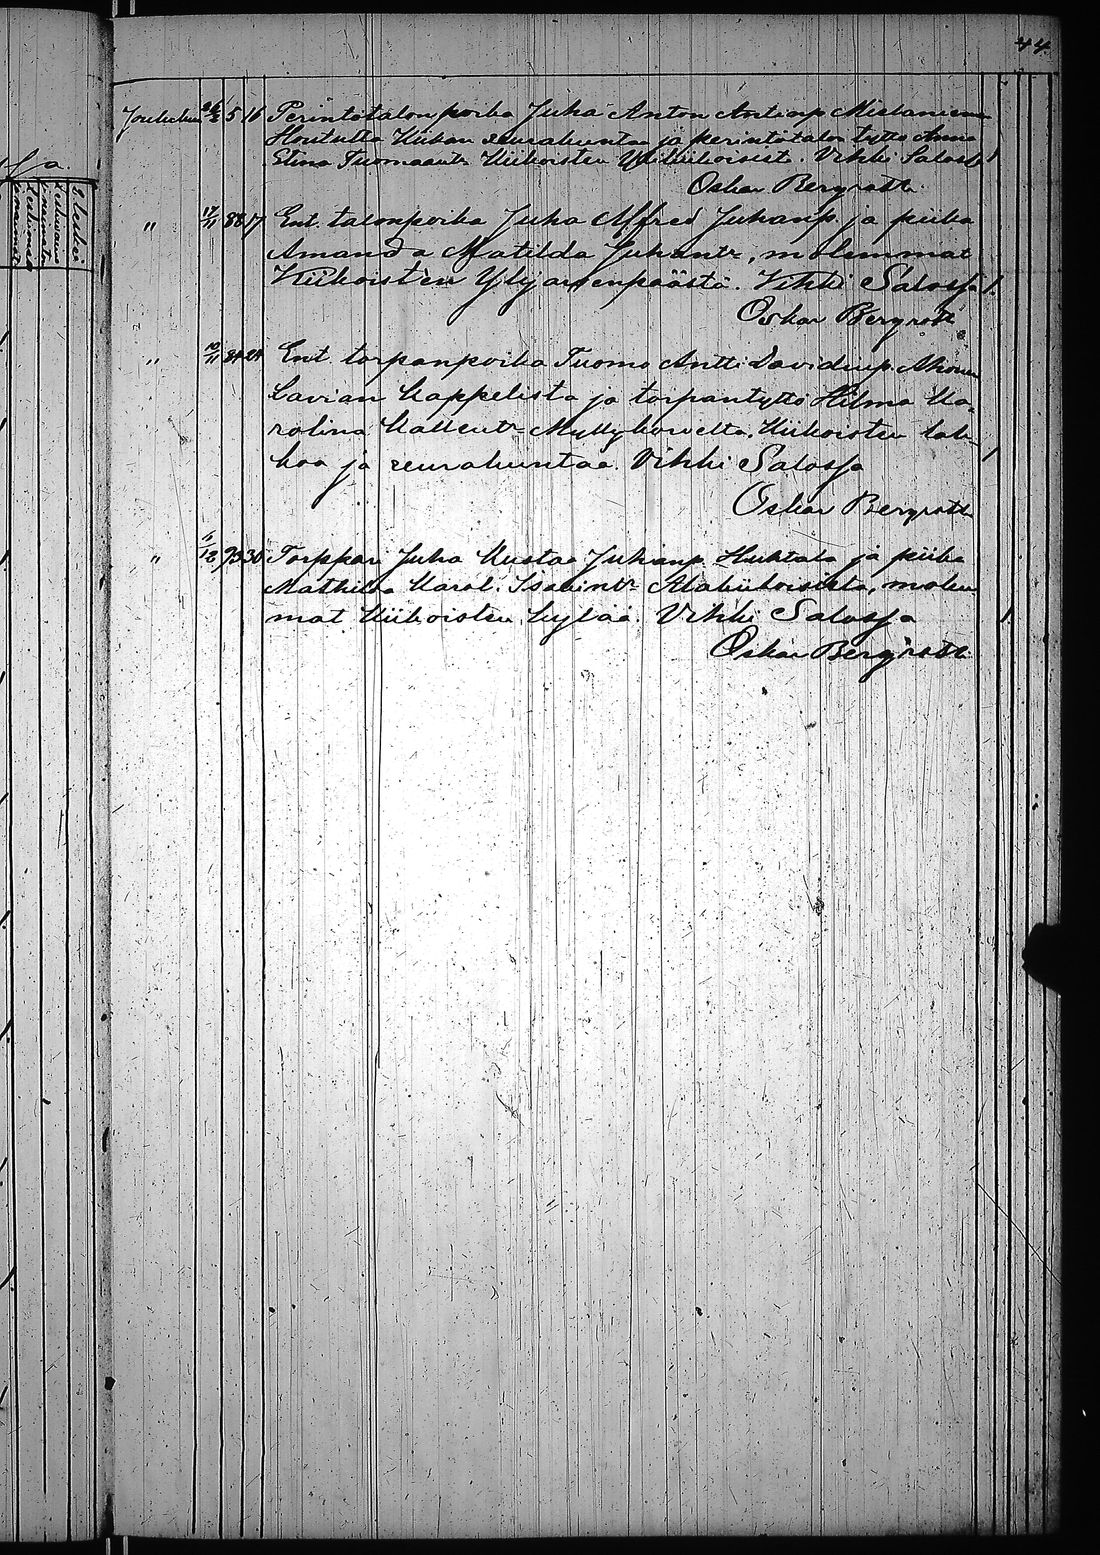 44.
Joulukuu 5 16 Perintötalonpoika Juha Anton Antinp.
Kiikan seurakuntaa ja perintötalon tyttö Anna
Stina Tuomaantr Kiikoisten Ylikiikoisist. Vihki Salossa 1
Oskar Bergroth.
" 17/11 88 17 Ent. talonpoika Juha Alfred Juhanp. ja piika
Amanda Matilda Juhantr, molemmat
Kiikoisten Ylijaaranpäästä. Vihki Salossa 1.
Oskar Bergroth
" 10/11 84 24 Ent. torpanpoika Tuomo Antti Davidinp.
Lavian kappelista ja torpantyttö Hilma Ka-
rolina Kallentr Myllykorvelta, Kiikoisten
ja seurakuntaa. Vihki Salossa 1
Oskar Bergroth
" 1/12 93 30 Torppari Juha Kustaa Juhanp. Huhtala ja piika
Mathilda Karol. Isakintr Alakiikoisista, molem
mat Kiikoisten kylää. Vihki Salossa 1.
Oskar Bergroth.